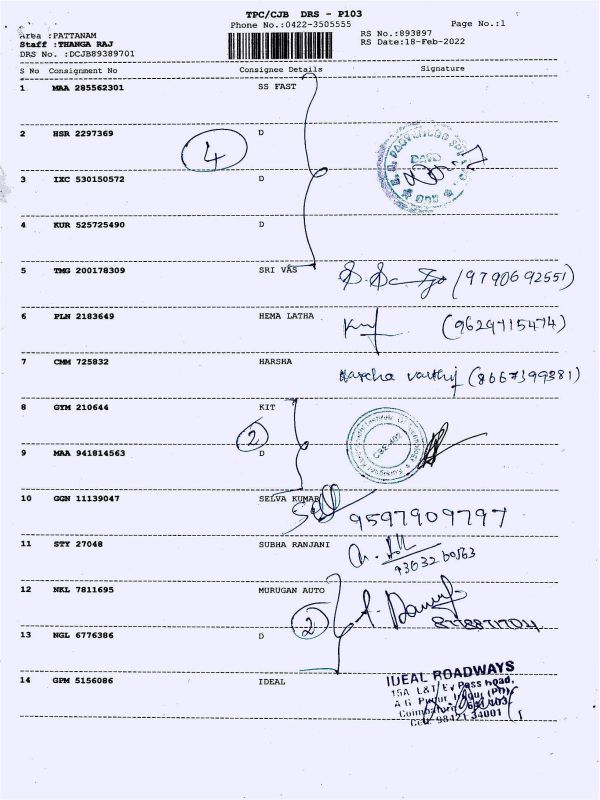 TPC/CJB DRS - P103
Phone No.:0422-3505555
Page No.:1
Area :PATTANAM
RS No.:893897
Staff :THANGA RAJ
RS Date:18-Feb-2022
DRS No. :DCJB89389701
S No Consignment No Consignee Details Signature
1 MAA 285562301 SS FAST
2 HSR 2297369 D
4
3 IXC 530150572 D
4 KUR 525725490 D
5 TMG 200178309 SRI VAS (9790692551)
6 PLN 2183649 HEMA LATHA (9629715474)
7 CMM 725832 HARSHA Harsha varthij (8667399381)
8 GYM 210644 KIT
2
9 MAA 941814563 D
10 GGN 11139047 SELVA KUMAR 9597909797
11 STY 27048 SUBHA RANJANI
12 NKL 7811695 MURUGAN AUTO
2
13 NGL 6776386 D
14 GPM 5156086 IDEAL
IDEAL ROADWAYS
15A L&T Ey Pass Road,
Coimbatore 641 103
Cell: 98421 34001